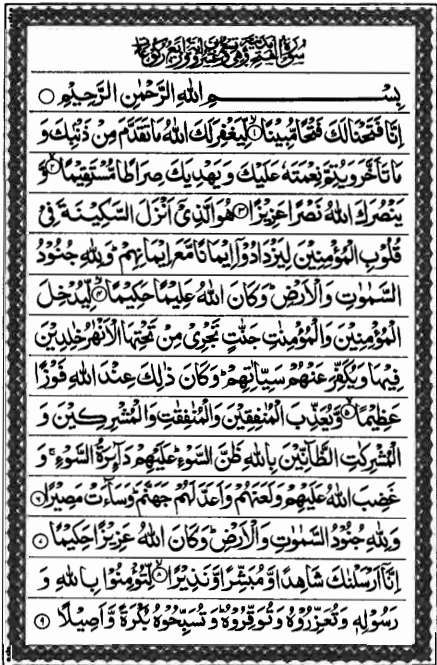 سُوْرَةُ الْفَتْحِ مَدَنِيَّةٌ وَهِيَ تِسْعٌ وَعِشْرُوْنَ اٰيَةً
بِسْمِ اللهِ الرَّحْمٰنِ الرَّحِيْمِ
اِنَّا فَتَحْنَا لَكَ فَتْحًا مُّبِيْنًا ۙ۝۱ لِّيَغْفِرَ لَكَ اللهُ مَا تَقَدَّمَ مِنْ ذَنْۢبِكَ وَ
مَا تَاَخَّرَ وَيُتِمَّ نِعْمَتَهٗ عَلَيْكَ وَ يَهْدِيَكَ صِرَاطًا مُّسْتَقِيْمًا ۙ۝۲ وَّ
يَنْصُرَكَ اللهُ نَصْرًا عَزِيْزًا ۝۳ هُوَ الَّذِيْۤ اَنْزَلَ السَّكِيْنَةَ فِيْ
قُلُوْبِ الْمُؤْمِنِيْنَ لِيَزْدَادُوْۤا اِيْمَانًا مَّعَ اِيْمَانِهِمْ ؕ وَ لِلّٰهِ جُنُوْدُ
السَّمٰوٰتِ وَ الْاَرْضِ ؕ وَ كَانَ اللهُ عَلِيْمًا حَكِيْمًا ۙ۝۴ لِّيُدْخِلَ
الْمُؤْمِنِيْنَ وَالْمُؤْمِنٰتِ جَنّٰتٍ تَجْرِيْ مِنْ تَحْتِهَا الْاَنْهٰرُ خٰلِدِيْنَ
فِيْهَا وَ يُكَفِّرَ عَنْهُمْ سَيِّاٰتِهِمْ ؕ وَ كَانَ ذٰلِكَ عِنْدَ اللهِ فَوْزًا
عَظِيْمًا ۙ۝۵ وَّ يُعَذِّبَ الْمُنٰفِقِيْنَ وَالْمُنٰفِقٰتِ وَالْمُشْرِكِيْنَ وَ
الْمُشْرِكٰتِ الظَّآنِّيْنَ بِاللهِ ظَنَّ السَّوْءِ ؕ عَلَيْهِمْ دَآىِٕرَةُ السَّوْءِ ۚ وَ
غَضِبَ اللهُ عَلَيْهِمْ وَ لَعَنَهُمْ وَ اَعَدَّ لَهُمْ جَهَنَّمَ ؕ وَ سَآءَتْ مَصِيْرًا ۝۶
وَ لِلّٰهِ جُنُوْدُ السَّمٰوٰتِ وَ الْاَرْضِ ؕ وَ كَانَ اللهُ عَزِيْزًا حَكِيْمًا ۝۷
اِنَّاۤ اَرْسَلْنٰكَ شَاهِدًا وَّ مُبَشِّرًا وَّ نَذِيْرًا ۙ۝۸ لِّتُؤْمِنُوْا بِاللهِ وَ
رَسُوْلِهٖ وَ تُعَزِّرُوْهُ وَ تُوَقِّرُوْهُ ؕ وَ تُسَبِّحُوْهُ بُكْرَةً وَّ اَصِيْلًا ۝۹